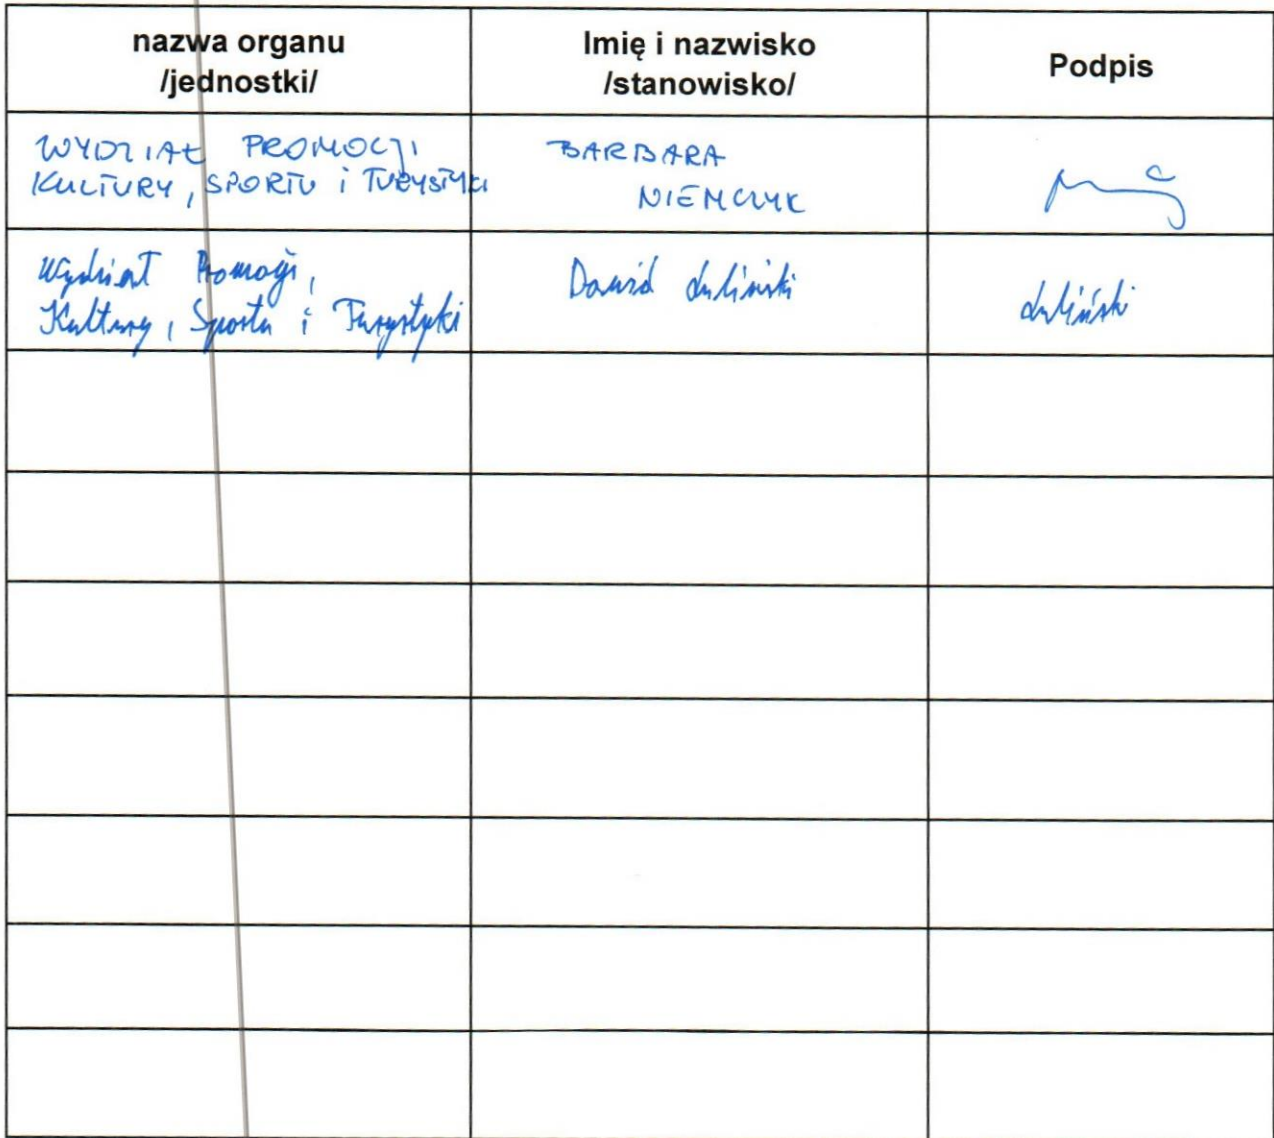 nazwa organu
/jednostki/
Imię i nazwisko
/stanowisko/
Podpis
WYDZIAŁ PROMOCJI
KULTURY, SPORTU i TURYSTYKI
BARBARA
NIEMCZYK
Wydział Promocji,
Kultury, Sportu i Turystyki
Dawid Luliński
Luliński